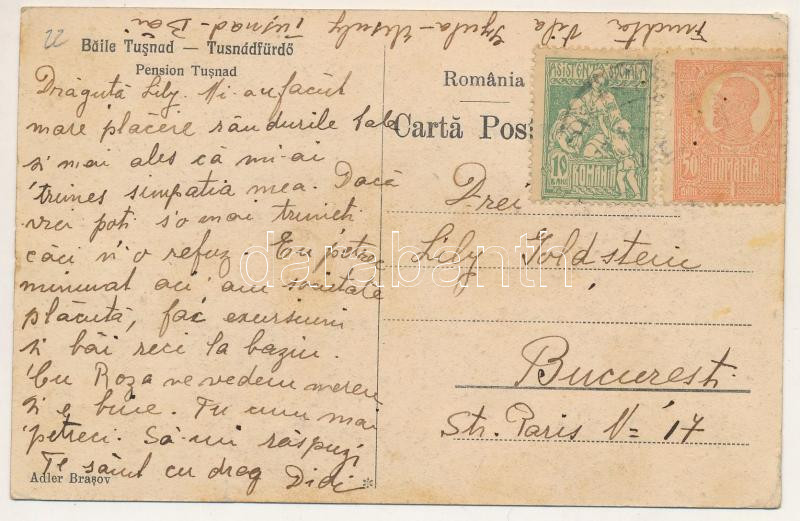 22
Băile Tuşnad — Tusnádfürdő
Pension Tuşnad
Drăguță Lily. Mi-au făcut
mare plăcere rândurile tale
și mai ales că mi-ai
trimes simpatia mea. Dacă
vrei poți s'o mai trimeți
căci n'o refuz. Eu petrec
minunat aci am societate
plăcută, fac excursiuni
și băi reci la bazin.
Cu Roza ne vedem mereu
și e bine. Tu cum mai
petreci. Să-mi răspunzi
Te sărut cu drag Didi
Adler Braşov
Vila Gyula-Tusnad-Băi
România
Cartă Pos
ASISTENTA SOCIALA
10
BANI
ROMANIA
50
BANI
ROMANIA
Drei
Lily Goldstein
Bucureşti
Str. Paris No 17
darabanth